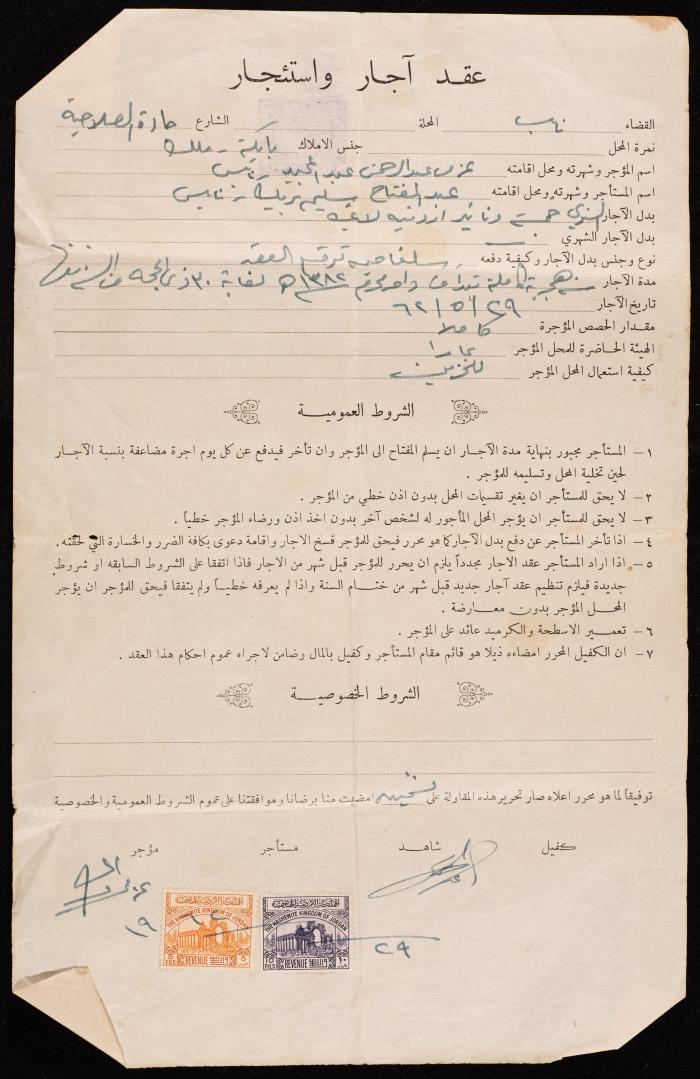 عقد آجار واستئجار
القضاء نابلس المحلة الشارع حارة الصلاحية
نمرة المحل جنس الاملاك بايكة ملك
اسم المؤجر وشهرته ومحل اقامته عزمي عبد الرحمن عبد المجيد نابلس
اسم المستأجر وشهرته ومحل اقامته عبد الفتاح سليم نابلس
بدل الآجار السنوي خمسة دنانير اردنية لا غير
بدل الآجار الشهري
نوع وجنس بدل الآجار وكيفية دفعه سلفا حين توقيع العقد
مدة الآجار سنة هجرية كاملة تبدأ من واحد محرم ١٣٨٢ هـ لغاية ٣٠ ذي الحجة من السنة نفسها
تاريخ الآجار ٢٩/٥/٦٢
مقدار الحصص المؤجرة كاملا
الهيئة الحاضرة للمحل المؤجر عامرا
كيفية استعمال المحل المؤجر للتخزين
الشروط العمومية
١- المستأجر مجبور بنهاية مدة الآجار ان يسلم المفتاح الى المؤجر وان تأخر فيدفع عن كل يوم اجرة مضاعفة بنسبة الآجار
لحين تخلية المحل وتسليمه للمؤجر .
٢- لا يحق للمستأجر ان يغير تقسيمات المحل بدون اذن خطي من المؤجر .
٣- لا يحق للمستأجر ان يؤجر المحل المأجور له لشخص آخر بدون اخذ اذن ورضاء المؤجر خطياً .
٤- اذا تأخر المستأجر عن دفع بدل الآجار كما هو محرر فيحق للمؤجر فسخ الاجار واقامة دعوى بكافة الضرر والخسارة التي لحقته .
٥- اذا اراد المستأجر عقد الاجار مجدداً يلزم ان يحرر للمؤجر قبل شهر من الاجار فاذا اتفقا على الشروط السابقه او شروط
جديدة فيلزم تنظيم عقد آجار جديد قبل شهر من ختام السنة واذا لم يعرفه خطياً ولم يتفقا فيحق للمؤجر ان يؤجر
المحل المؤجر بدون معارضة .
٦- تعمير الاسطحة والكرميد عائد على المؤجر .
٧- ان الكفيل المحرر امضاءه ذيلا هو قائم مقام المستأجر وكفيل بالمال وضامن لاجراء عموم احكام هذا العقد .
الشروط الخصوصية
توفيقاً لما هو محرر اعلاه صار تحرير هذه المقاولة على نسختين امضيت منا برضانا وموافقتنا على عموم الشروط العمومية والخصوصية
كفيل شاهد مستأجر مؤجر
المملكة الاردنية الهاشمية
THE HASHEMITE KINGDOM OF JORDAN
١٠ REVENUE 10 FILS
المملكة الاردنية الهاشمية
THE HASHEMITE KINGDOM OF JORDAN
٥ REVENUE 5 FILS
٢٩
١٩